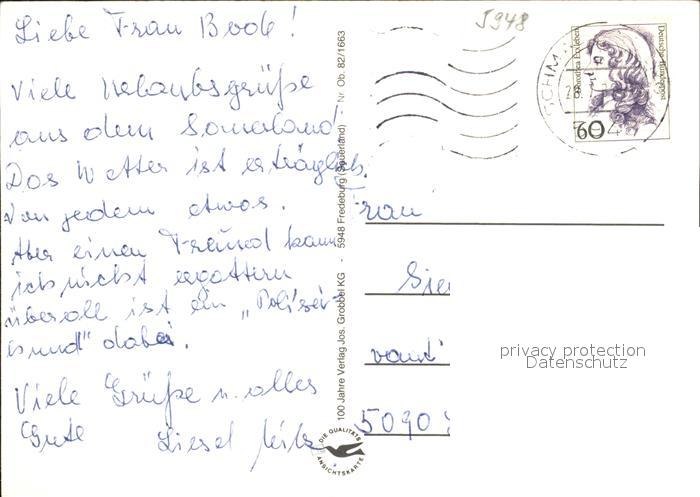 Liebe Frau Bode!
Viele Urlaubsgrüße
aus dem Sauerland.
Das Wetter ist erträglich.
Von jedem etwas.
Aber einen Freund kann
ich nicht ergattern
überall ist ein „Polizei-
hund" dabei.
Viele Grüße u. alles
Gute Liesel
100 Jahre Verlag Jos. Grobbel KG · 5948 Fredeburg (Sauerland) Nr. Ob. 82/1663
DIE QUALITÄTS
ANSICHTSKARTE
5948
Dorothea Erxleben
Deutsche Bundespost
60
SCHM
Frau
Sie
5090
privacy protection
Datenschutz